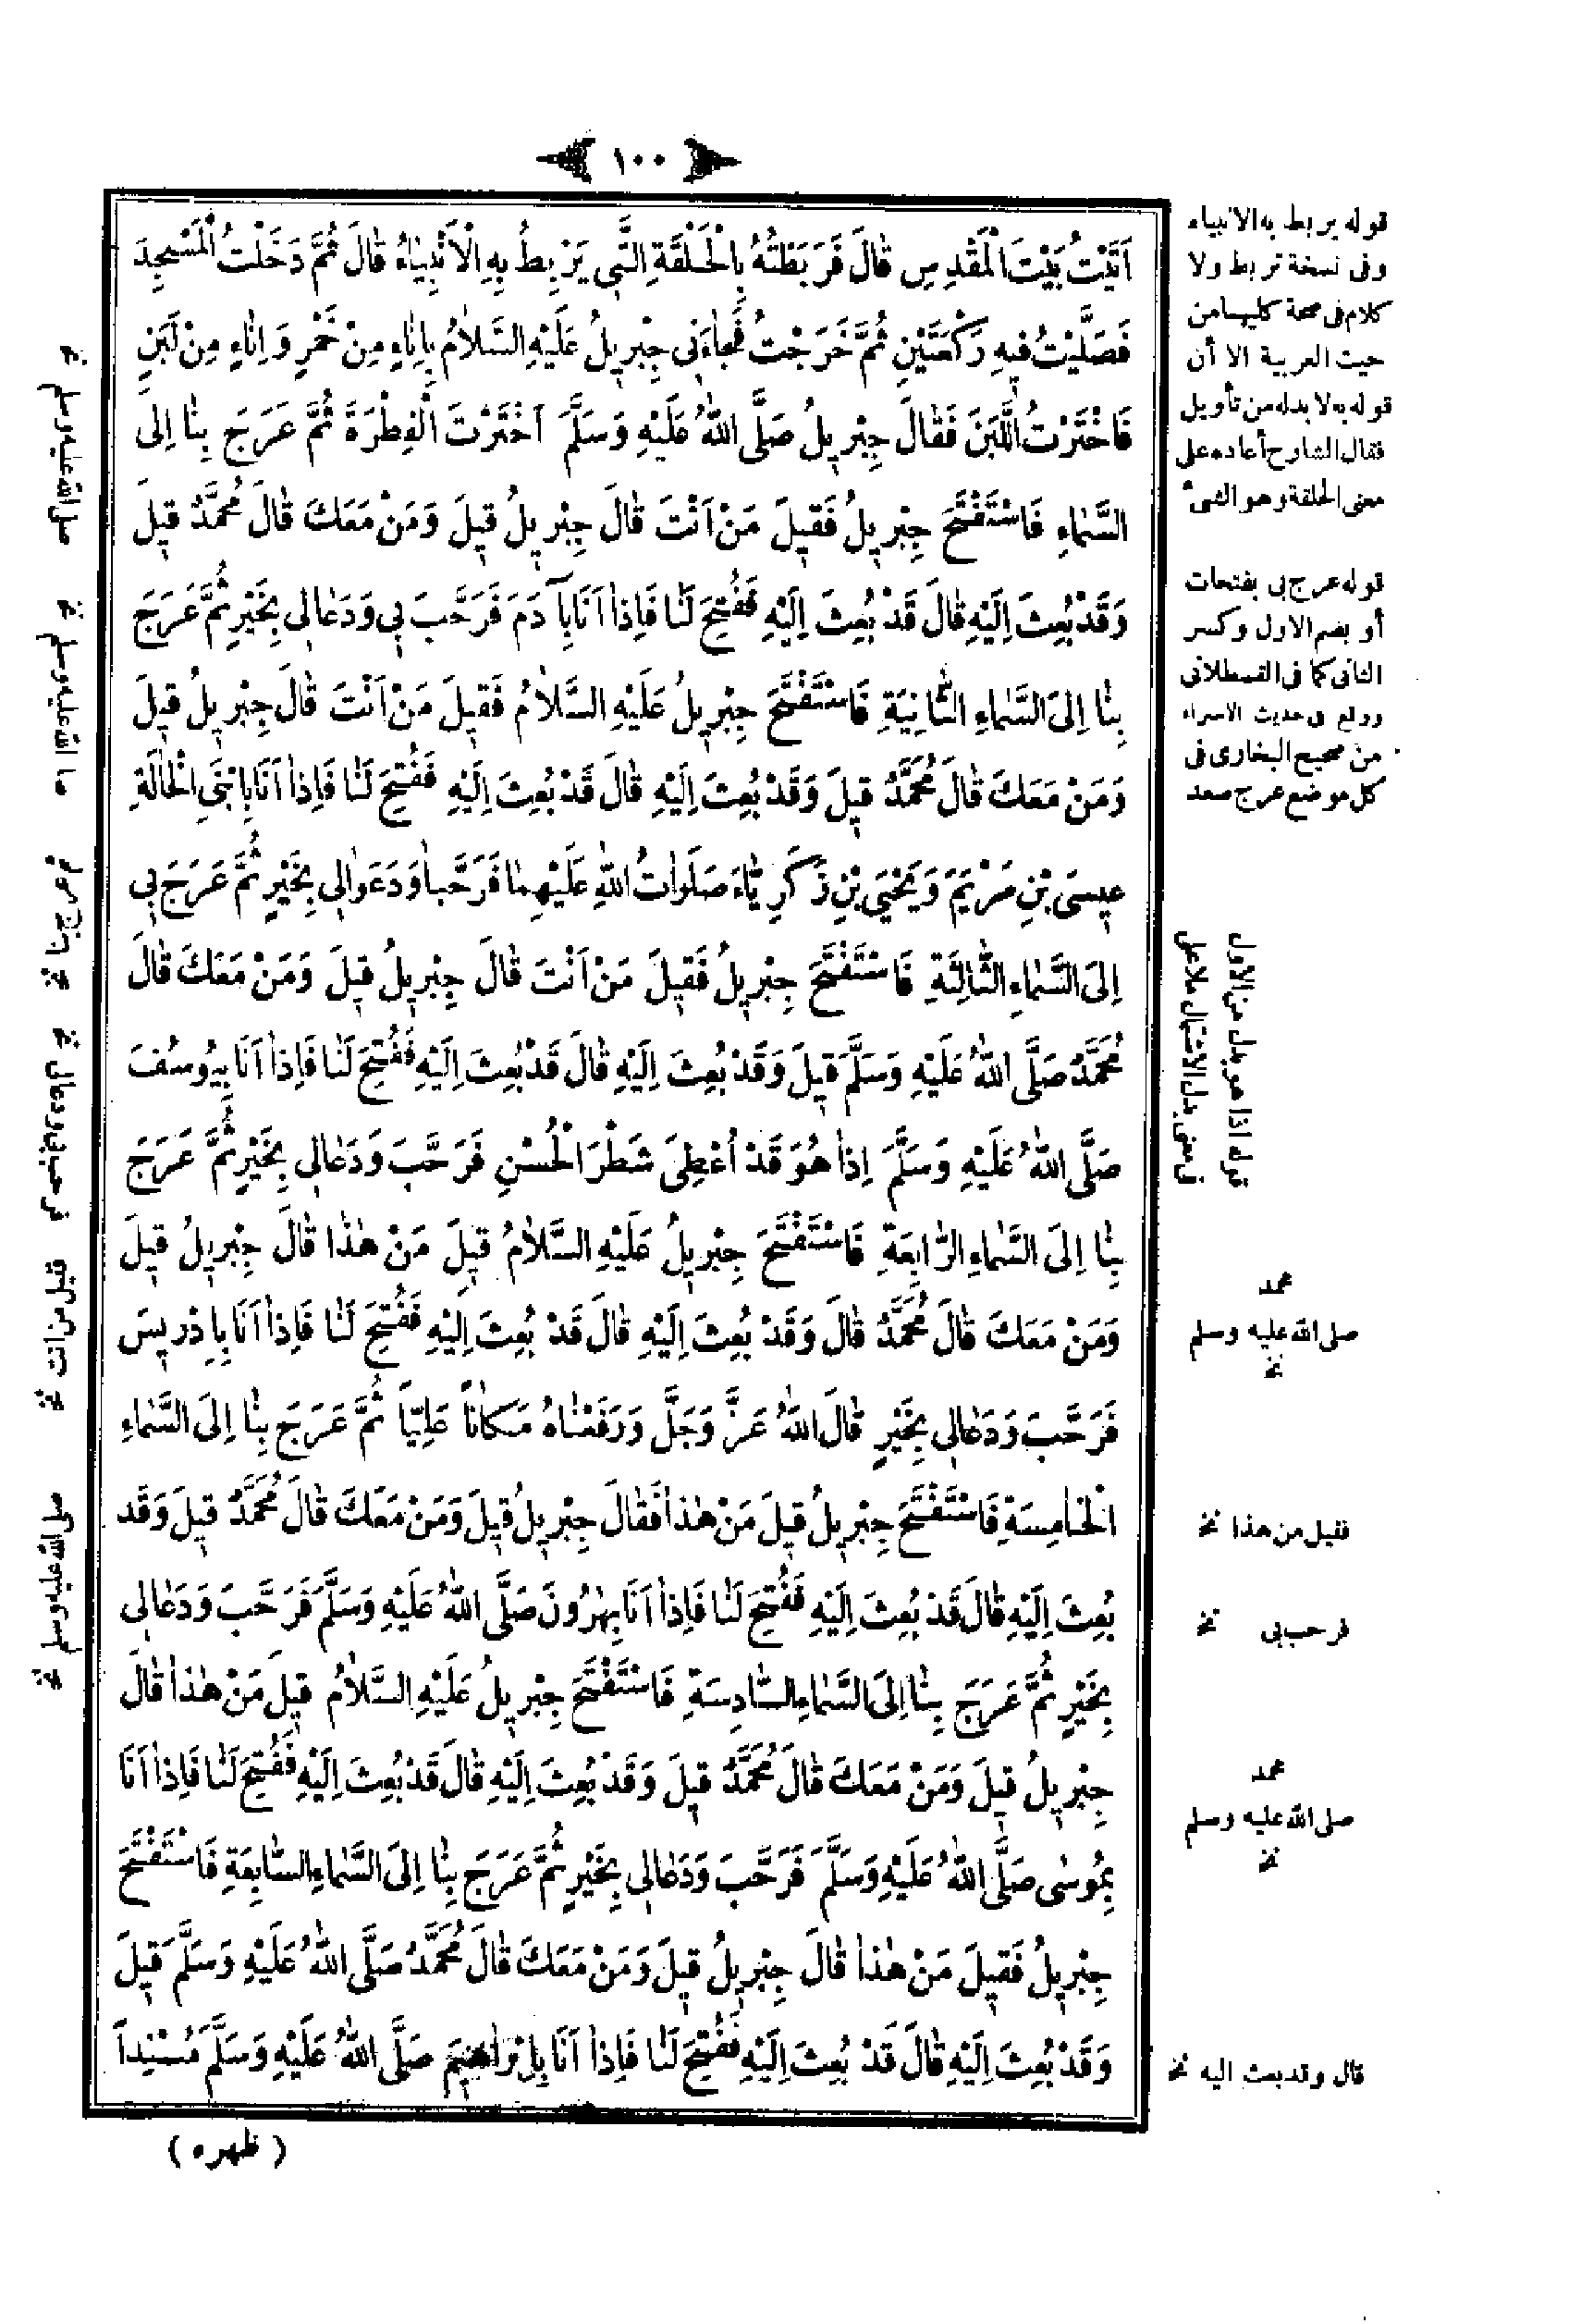 ١٠٠
اَتَيْتُ بَيْتَ الْمَقْدِسِ قَالَ فَرَبَطْتُهُ بِالْحَلْقَةِ الَّتِي يَرْبِطُ بِهِ الْاَنْبِيَاءُ قَالَ ثُمَّ دَخَلْتُ الْمَسْجِدَ
فَصَلَّيْتُ فِيهِ رَكْعَتَيْنِ ثُمَّ خَرَجْتُ فَجَاءَنِي جِبْرِيلُ عَلَيْهِ السَّلَامُ بِاِنَاءٍ مِنْ خَمْرٍ وَاِنَاءٍ مِنْ لَبَنٍ
فَاخْتَرْتُ اللَّبَنَ فَقَالَ جِبْرِيلُ صَلَّى اللهُ عَلَيْهِ وَسَلَّمَ اَخْتَرْتَ الْفِطْرَةَ ثُمَّ عَرَجَ بِنَا اِلَى
السَّمَاءِ فَاسْتَفْتَحَ جِبْرِيلُ فَقِيلَ مَنْ اَنْتَ قَالَ جِبْرِيلُ قِيلَ وَمَنْ مَعَكَ قَالَ مُحَمَّدٌ قِيلَ
وَقَدْ بُعِثَ اِلَيْهِ قَالَ قَدْ بُعِثَ اِلَيْهِ فَفُتِحَ لَنَا فَاِذَا اَنَا بِآدَمَ فَرَحَّبَ بِي وَدَعَا لِي بِخَيْرٍ ثُمَّ عَرَجَ
بِنَا اِلَى السَّمَاءِ الثَّانِيَةِ فَاسْتَفْتَحَ جِبْرِيلُ عَلَيْهِ السَّلَامُ فَقِيلَ مَنْ اَنْتَ قَالَ جِبْرِيلُ قِيلَ
وَمَنْ مَعَكَ قَالَ مُحَمَّدٌ قِيلَ وَقَدْ بُعِثَ اِلَيْهِ قَالَ قَدْ بُعِثَ اِلَيْهِ فَفُتِحَ لَنَا فَاِذَا اَنَا بِابْنَيِ الْخَالَةِ
عِيسَى بْنِ مَرْيَمَ وَيَحْيَى بْنِ زَكَرِيَّاءَ صَلَوَاتُ اللهِ عَلَيْهِمَا فَرَحَّبَا وَدَعَوَا لِي بِخَيْرٍ ثُمَّ عَرَجَ بِي
اِلَى السَّمَاءِ الثَّالِثَةِ فَاسْتَفْتَحَ جِبْرِيلُ فَقِيلَ مَنْ اَنْتَ قَالَ جِبْرِيلُ قِيلَ وَمَنْ مَعَكَ قَالَ
مُحَمَّدٌ صَلَّى اللهُ عَلَيْهِ وَسَلَّمَ قِيلَ وَقَدْ بُعِثَ اِلَيْهِ قَالَ قَدْ بُعِثَ اِلَيْهِ فَفُتِحَ لَنَا فَاِذَا اَنَا بِيُوسُفَ
صَلَّى اللهُ عَلَيْهِ وَسَلَّمَ اِذَا هُوَ قَدْ اُعْطِيَ شَطْرَ الْحُسْنِ فَرَحَّبَ وَدَعَا لِي بِخَيْرٍ ثُمَّ عَرَجَ
بِنَا اِلَى السَّمَاءِ الرَّابِعَةِ فَاسْتَفْتَحَ جِبْرِيلُ عَلَيْهِ السَّلَامُ قِيلَ مَنْ هٰذَا قَالَ جِبْرِيلُ قِيلَ
وَمَنْ مَعَكَ قَالَ مُحَمَّدٌ قَالَ وَقَدْ بُعِثَ اِلَيْهِ قَالَ قَدْ بُعِثَ اِلَيْهِ فَفُتِحَ لَنَا فَاِذَا اَنَا بِاِدْرِيسَ
فَرَحَّبَ وَدَعَا لِي بِخَيْرٍ قَالَ اللهُ عَزَّ وَجَلَّ وَرَفَعْنَاهُ مَكَانًا عَلِيًّا ثُمَّ عَرَجَ بِنَا اِلَى السَّمَاءِ
الْخَامِسَةِ فَاسْتَفْتَحَ جِبْرِيلُ قِيلَ مَنْ هٰذَا فَقَالَ جِبْرِيلُ قِيلَ وَمَنْ مَعَكَ قَالَ مُحَمَّدٌ قِيلَ وَقَدْ
بُعِثَ اِلَيْهِ قَالَ قَدْ بُعِثَ اِلَيْهِ فَفُتِحَ لَنَا فَاِذَا اَنَا بِهٰرُونَ صَلَّى اللهُ عَلَيْهِ وَسَلَّمَ فَرَحَّبَ وَدَعَا لِي
بِخَيْرٍ ثُمَّ عَرَجَ بِنَا اِلَى السَّمَاءِ السَّادِسَةِ فَاسْتَفْتَحَ جِبْرِيلُ عَلَيْهِ السَّلَامُ قِيلَ مَنْ هٰذَا قَالَ
جِبْرِيلُ قِيلَ وَمَنْ مَعَكَ قَالَ مُحَمَّدٌ قِيلَ وَقَدْ بُعِثَ اِلَيْهِ قَالَ قَدْ بُعِثَ اِلَيْهِ فَفُتِحَ لَنَا فَاِذَا اَنَا
بِمُوسٰى صَلَّى اللهُ عَلَيْهِ وَسَلَّمَ فَرَحَّبَ وَدَعَا لِي بِخَيْرٍ ثُمَّ عَرَجَ بِنَا اِلَى السَّمَاءِ السَّابِعَةِ فَاسْتَفْتَحَ
جِبْرِيلُ فَقِيلَ مَنْ هٰذَا قَالَ جِبْرِيلُ قِيلَ وَمَنْ مَعَكَ قَالَ مُحَمَّدٌ صَلَّى اللهُ عَلَيْهِ وَسَلَّمَ قِيلَ
وَقَدْ بُعِثَ اِلَيْهِ قَالَ قَدْ بُعِثَ اِلَيْهِ فَفُتِحَ لَنَا فَاِذَا اَنَا بِاِبْرَاهِيمَ صَلَّى اللهُ عَلَيْهِ وَسَلَّمَ مُسْنِداً
( ظهره )
قوله يربط به الانبياء
وفى نسخة تربط ولا
كلام فى صحة كليهما من
حيث العربية الا أن
قوله به لا بدله من تأويل
فقال الشارح أعاده على
معنى الحلقة وهو الشئ
قوله عرج بى بفتحات
أو بضم الاول وكسر
الثانى كما فى القسطلانى
ووقع فى حديث الاسراء
من صحيح البخارى فى
كل موضع عرج صعد
قوله اذا هو بدل من الاول
فى معنى بدل الاشتمال ملا على
محمد
صلى الله عليه وسلم
نخ
فقيل من هذا نخ
فرحب بى نخ
محمد
صلى الله عليه وسلم
نخ
قال وقد بعث اليه نخ
صلى الله عليه وسلم نخ
صلى الله عليه وسلم نخ
فرحب بى ودعا لى نخ
فقيل من انت نخ
صلى الله عليه وسلم نخ